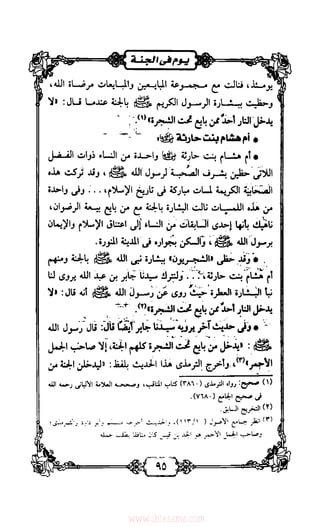 يوم في الجنة
يومئذ، فنالت مع مجموعة المبايعين والمبايعات مرضاة الله،
وحظيت ببشارة الرسول الكريم ﷺ بالجنة عندما قال: «لا
يدخل النار أحد ممن بايع تحت الشجرة»(١).
* أم هشام بنت حارثة
* أم هشام بنت حارثة واحدة من النساء ذوات الفضل
اللاتي حظين بشرف الصحبة لرسول الله ﷺ، وقد تركت هذه
الصحابية الكريمة لمسات مباركة في تاريخ الإسلام... وفي واحدة
من هذه اللمسات نالت البشارة بالجنة مع من بايع بيعة الرضوان،
ناهيك بأنها إحدى السابقات من النساء إلى اعتناق الإسلام والإيمان
برسول الله ﷺ، والسكن بجواره في المدينة المنورة.
* وقد حظي «الشجريون» ببشارة نبي الله ﷺ بالجنة ومنهم
أم هشام بنت حارثة، ولنترك سيدنا جابر بن عبد الله يروي لنا
نبأ البشارة العطرة حيث روى عن رسول الله ﷺ أنه قال: «لا
يدخل النار أحد ممن بايع تحت الشجرة»(٢).
* وفي حديث آخر يرويه سيدنا جابر أيضًا قال: قال رسول الله
ﷺ: «يدخل من بايع تحت الشجرة كلهم الجنة، إلا صاحب الجمل
الأحمر»(٣)، وأخرج الترمذي هذا الحديث بلفظ: «ليدخلن الجنة من
(١) صحيح: رواه الترمذي (٣٨٦٠) كتاب المناقب، وصححه العلامة الألباني رحمه الله
في صحيح الجامع (٧٦٨٠).
(٢) التخريج السابق.
(٣) انظر جامع الأصول (١١٣/١)، والحديث أخرجه مسلم وأبو داود والترمذي؛
وصاحب الجمل الأحمر هو الجد بن قيس كان منافقًا يطلب جمله
٩٥